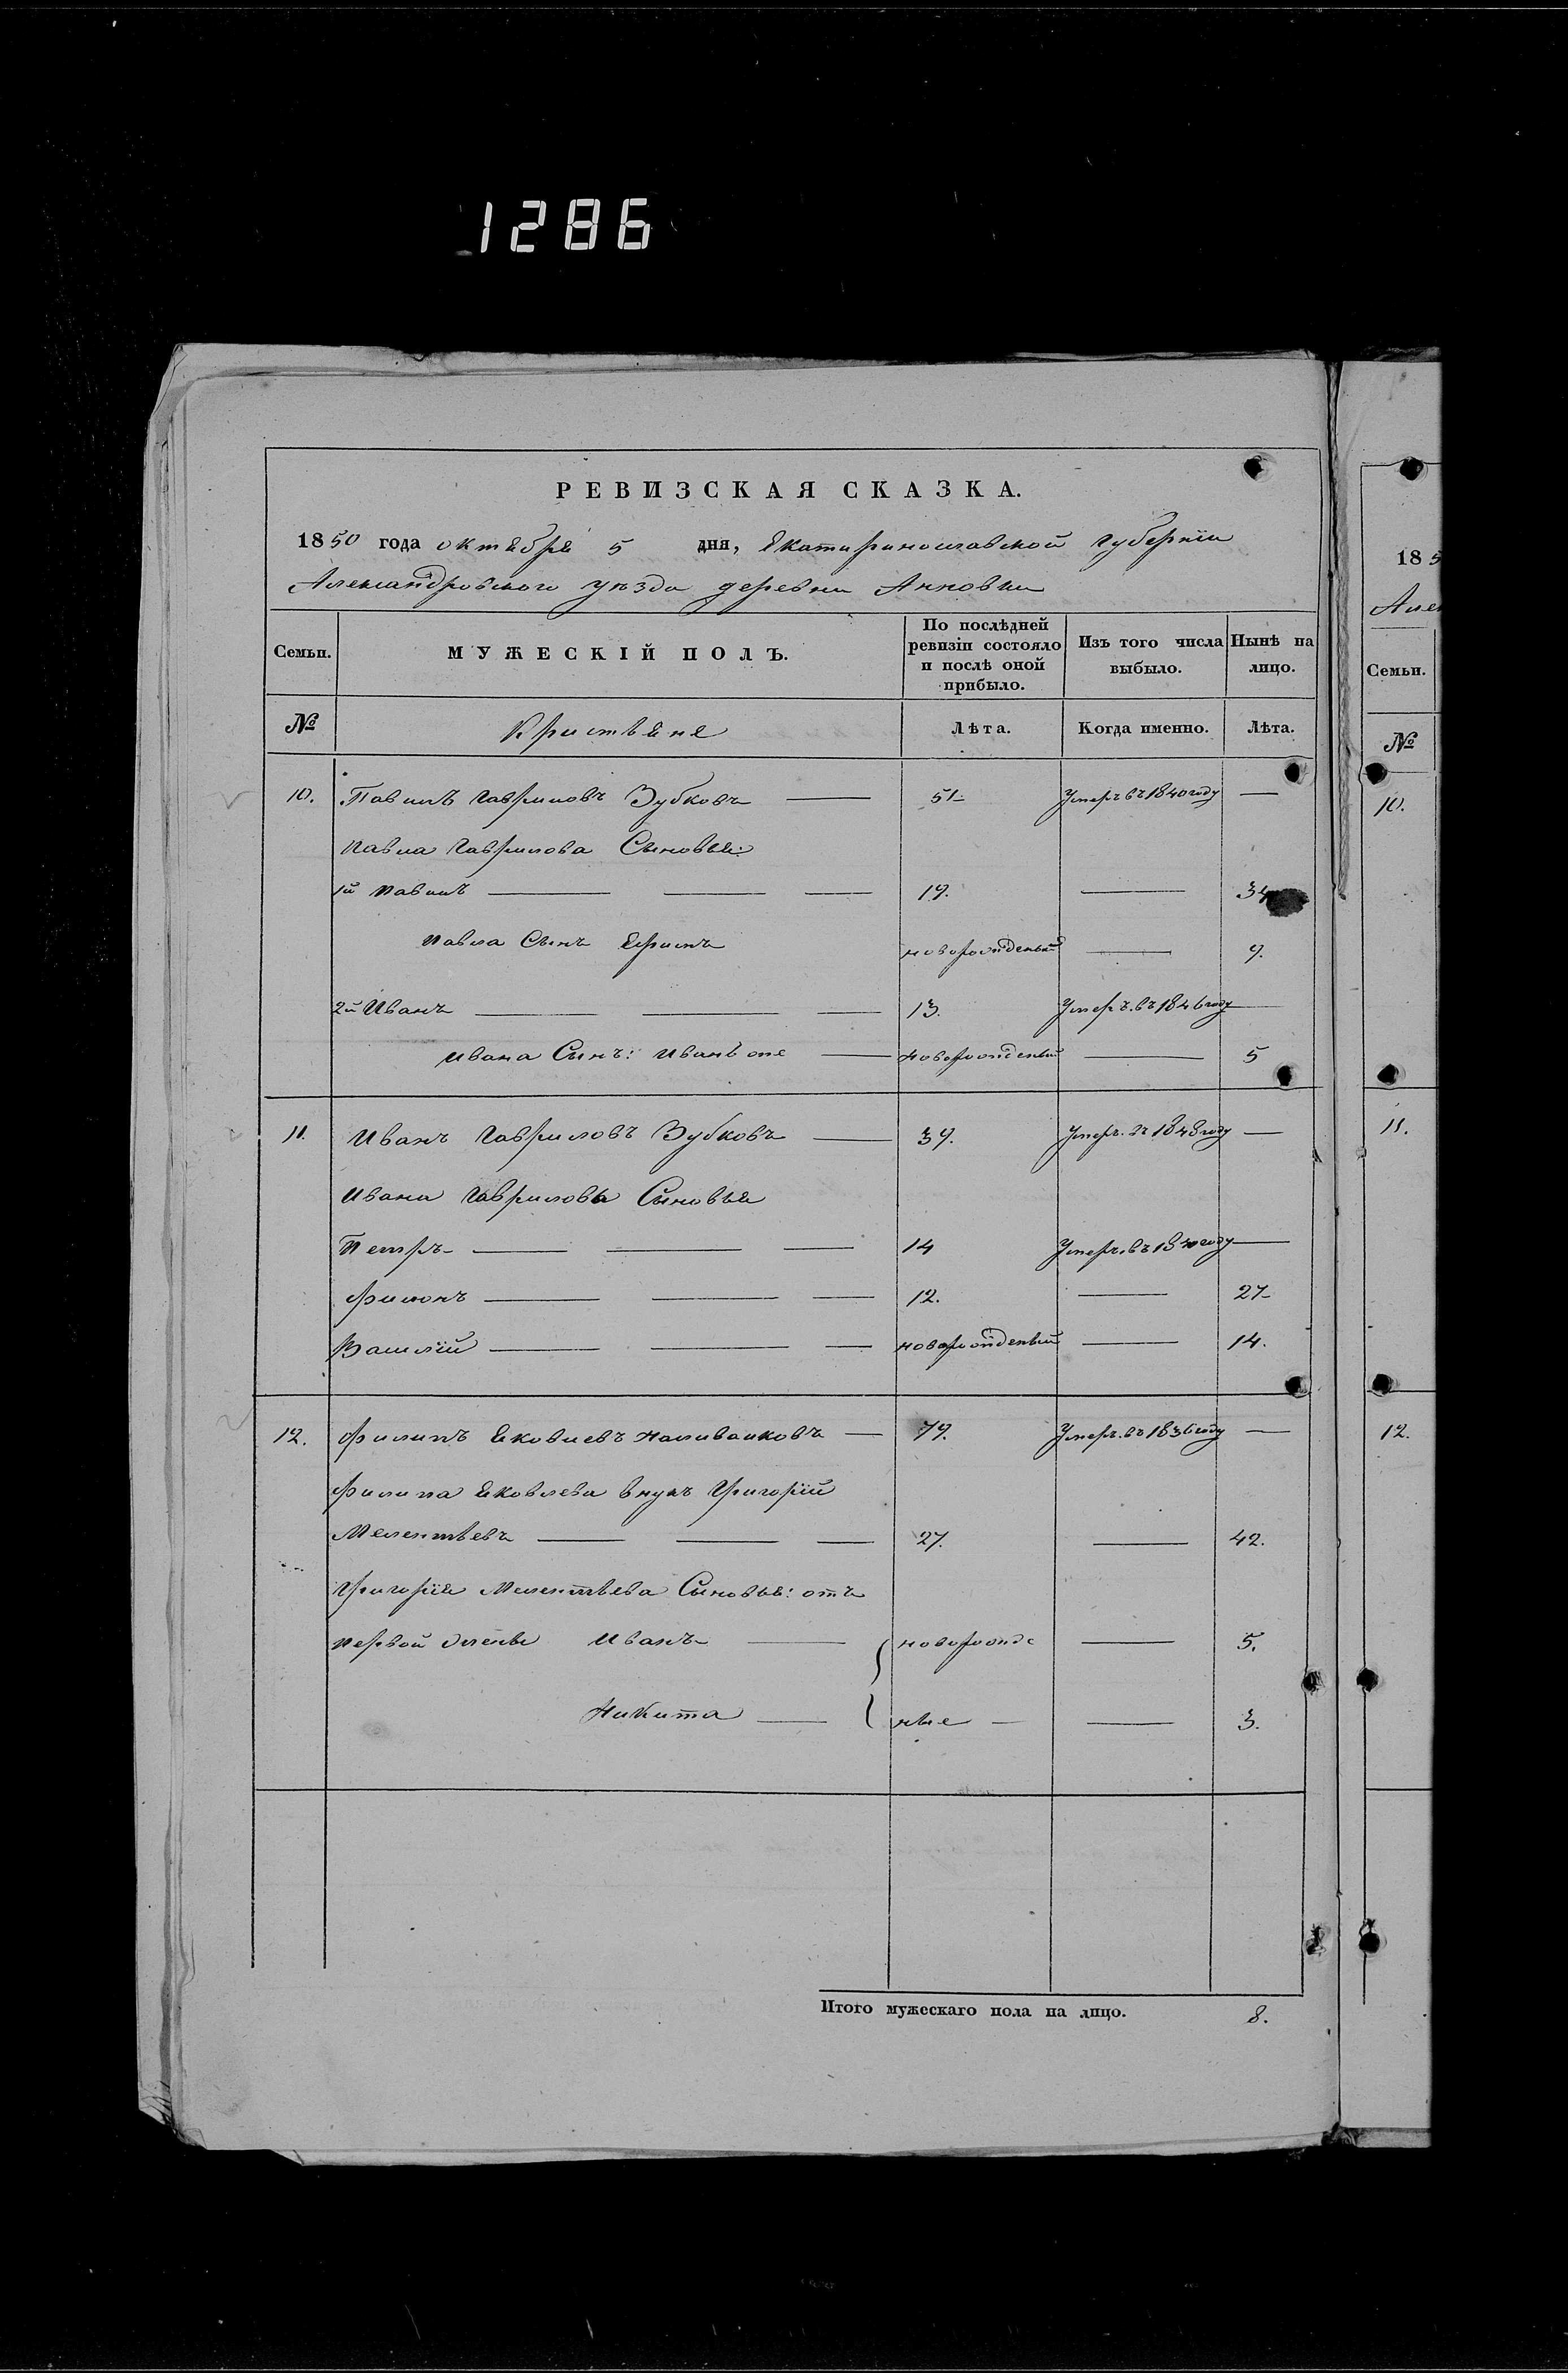 1286
РЕВИЗСКАЯ СКАЗКА.
1850 года октября 5 дня, Екатеринославской губерніи
Александровского уѣзда деревни Анновки
Семьи. МУЖЕСКІЙ ПОЛЪ. По послѣдней ревизіи состояло и послѣ оной прибыло. Изъ того числа выбыло. Нынѣ на лицо.
№ Кристьяне Лѣта. Когда именно. Лѣта.
10. Павилъ Гавриловъ Зубковъ 51 Умеръ въ 1840 году
Павла Гаврилова Сыновья:
1й Павилъ 19. 34
Павла Сынъ Ефимъ новорожденый 9.
2й Иванъ 13. Умеръ въ 1846 году
Ивана Сынъ: Иванъ же новорожденый 5
11. Иванъ Гавриловъ Зубковъ 39. Умеръ въ 1848 году
Ивана Гаврилова Сыновья
Петръ 14 Умеръ въ 1840 году
Филонъ 12. 27
Василій новорожденый 14.
12. Филипъ Яковлевъ Наливайковъ 79. Умеръ въ 1836 году
Филипа Яковлева внукъ Григорій
Мелентьевъ 27. 42.
Григорія Мелентьева Сыновья: отъ
первой жены Иванъ новорожде 5.
Никита ные 3.
Итого мужескаго пола на лицо. 8.
185
Алек
Семьи.
№
10.
11.
12.